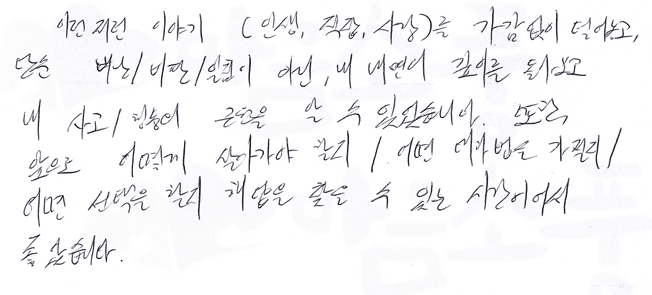 이런 저런 이야기 (인생, 직장, 사랑)를 가감없이 털어놓고,
단순 비난/비판/일침이 아닌, 내 내면의 깊이를 돌아보고
내 사고/행동의 근원을 알 수 있었습니다. 또한,
앞으로 어떻게 살아가야 할지 / 어떤 대화법을 가질지/
어떤 선택을 할지 해답을 찾을 수 있는 시간이어서
좋았습니다.